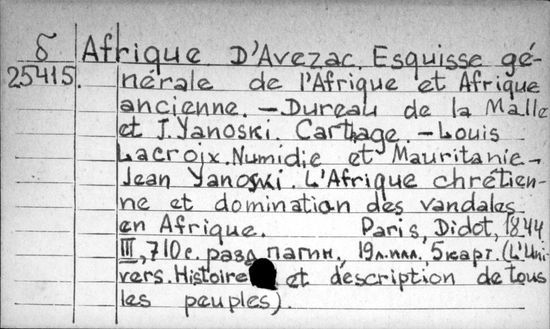 б Afrique D'Avezac. Esquisse gé-
25415. nérale de l'Afrique et Afrique
ancienne. — Dureau de la Malle
et J. Yanoski. Carthage. — Louis
Lacroix. Numidie et Mauritanie —
Jean Yanoski. L'Afrique chrétien-
ne et domination des vandales
en Afrique. Paris, Didot, 1844
III, 710 с. разд. пагин., 19 л. илл., 5 карт. (L'Uni-
vers. Histoire et description de tous
les peuples).